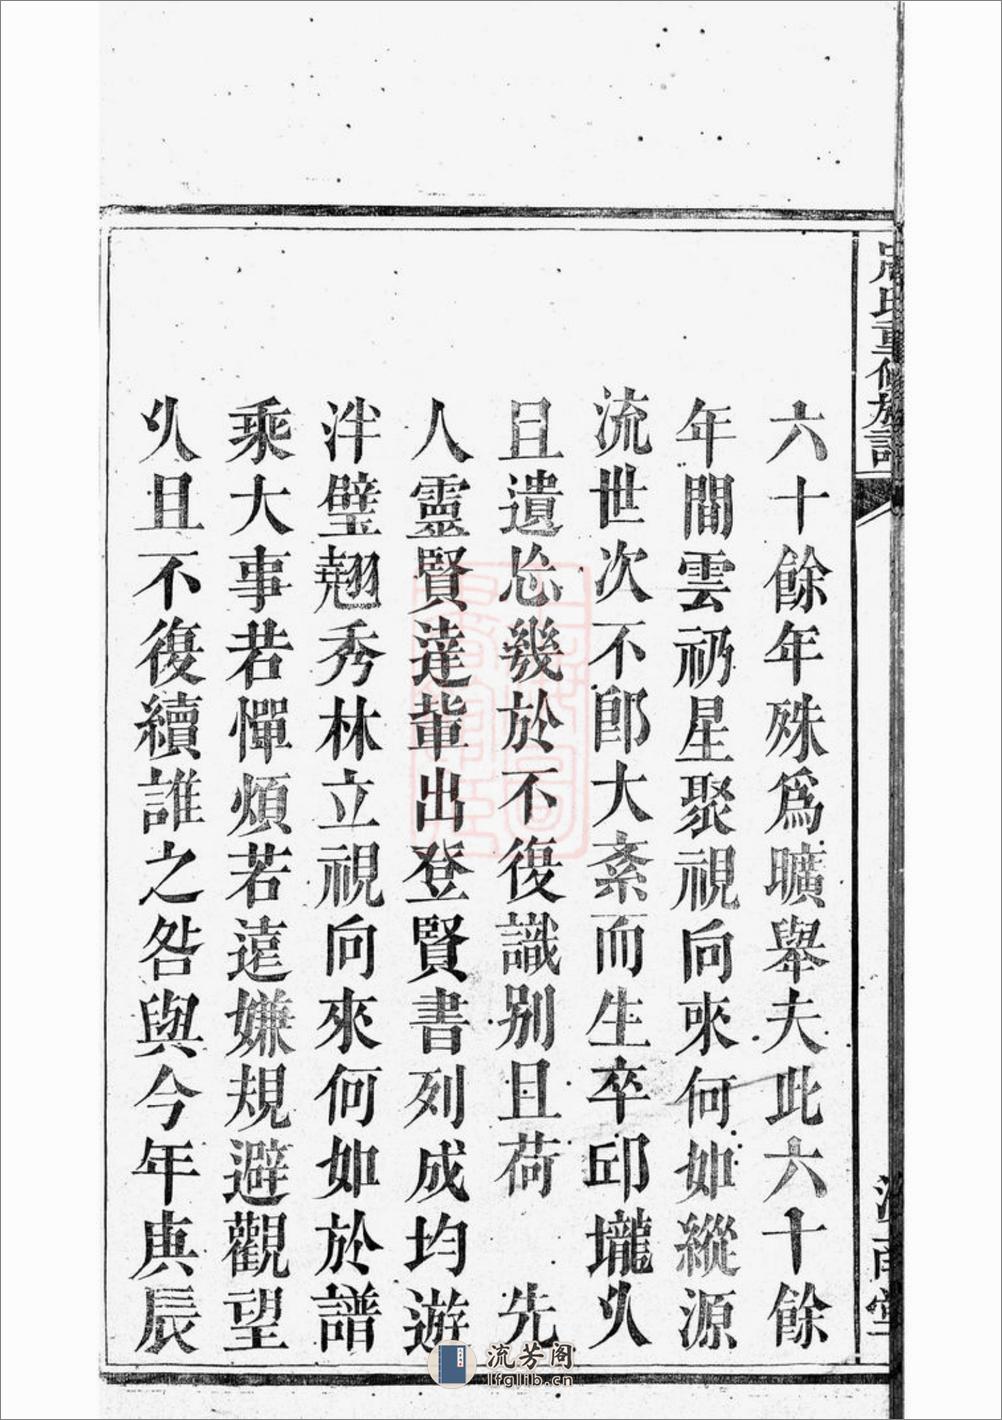 周氏重修族譜
六十餘年殊爲曠舉夫此六十餘
年間雲礽星聚視向來何如縱源
流世次不卽大紊而生卒邱壠久
且遺忘幾於不復識別且荷　先
人靈賢達輩出登賢書列成均遊
泮璧翹秀林立視向來何如於譜
乘大事若憚煩若遠嫌規避觀望
久且不復續誰之咎與今年庚辰
流芳阁
lfglib.cn